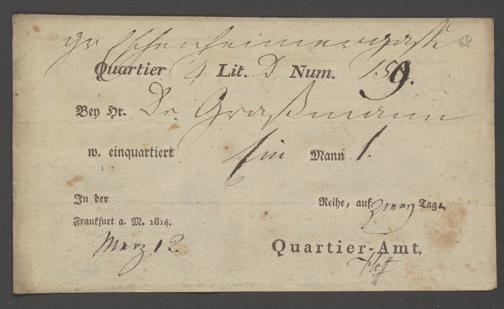 gr. Eschenheimergasse 62
Quartier 4 Lit. D Num. 159.
Bey Hr. Dr. Graßmann
w. einquartiert Ein Mann 1.
In der Reihe, auf zwey Tage
Frankfurt a. M. 1814.
Merz 12 Quartier-Amt.